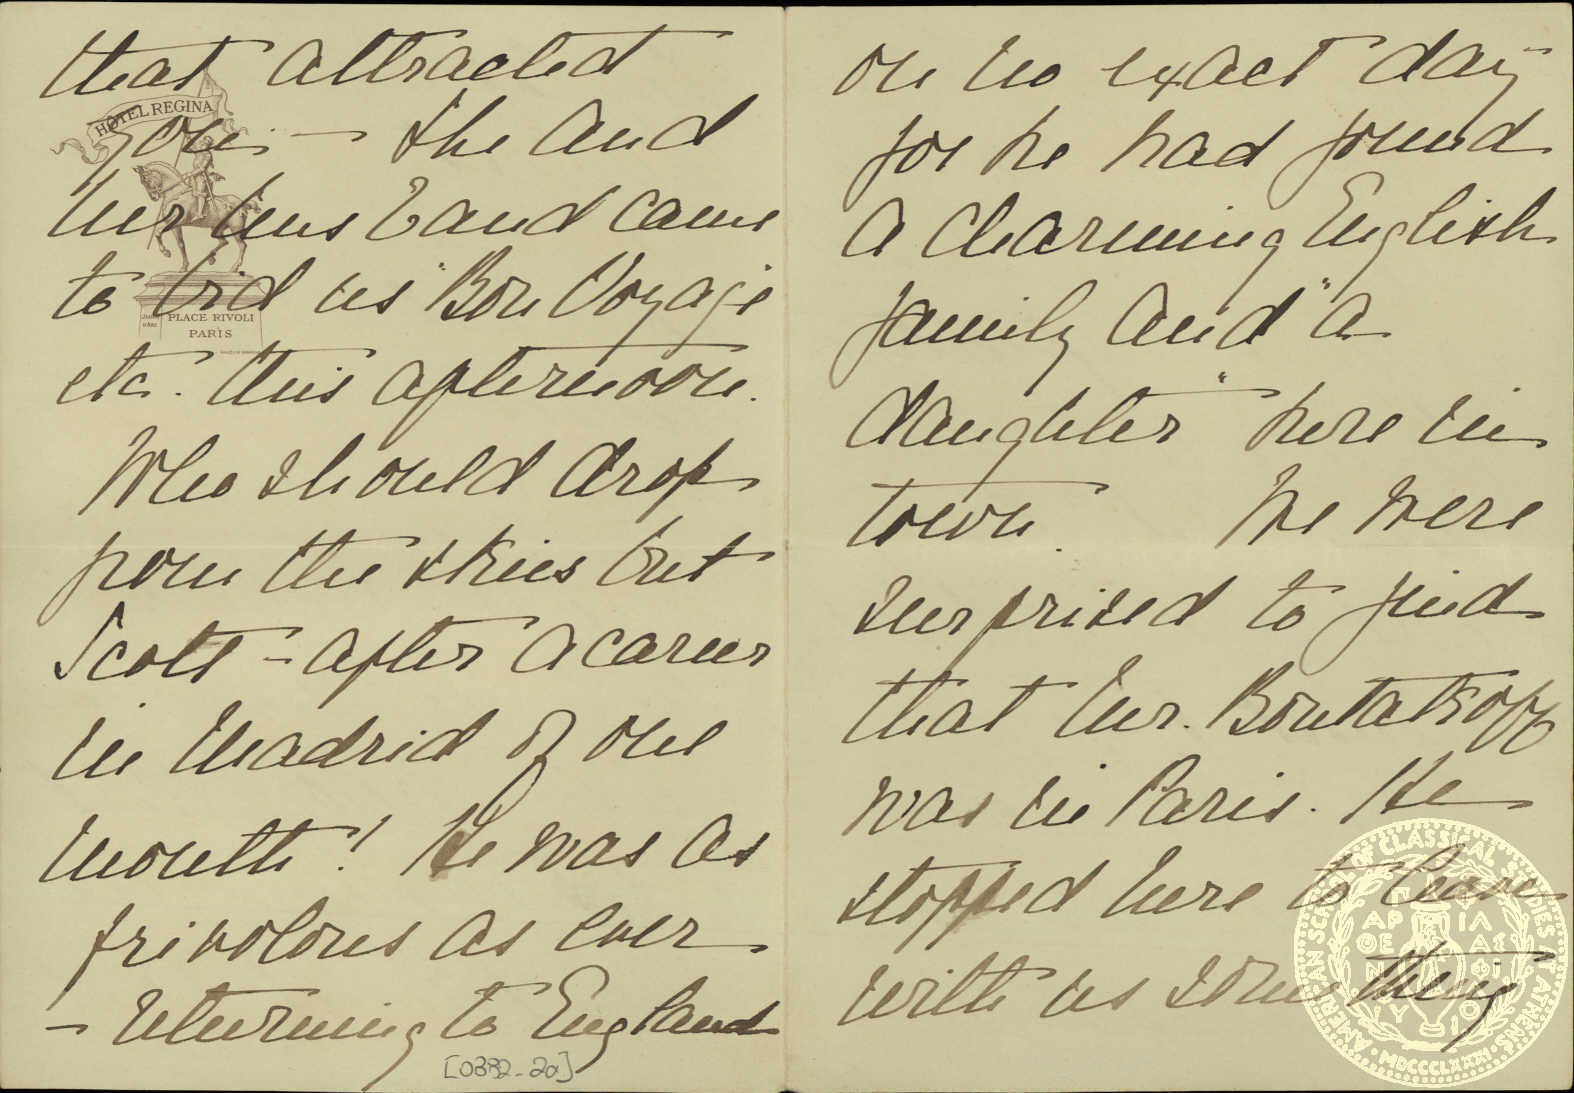 that attracted
you. — She and
her husband came
to bid us "Bon Voyage
etc. this afternoon.
Who should drop
from the skies but
Scott – after a career
in Madrid of one
month! He was as
frivolous as ever
– returning to England
[0382-2a]
HÔTEL REGINA
PLACE RIVOLI
PARIS
on no exact day
for he had found
a charming English
family and "a
daughter" here in
town. We were
surprised to find
that Mr. Boutatkoff
was in Paris. He
stopped here to leave
with us something
AMERICAN SCHOOL OF CLASSICAL STUDIES AT ATHENS
ΠΑΡΘΕΝΟΥ ΦΙΛΑΣ
MDCCCLXXXI